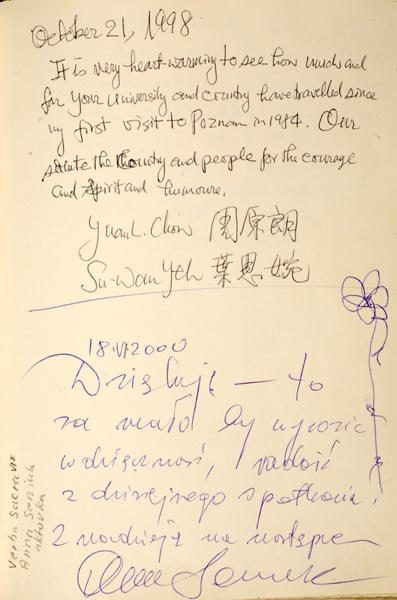 October 21, 1998
It is very heart warming to see how much and
far your university and country have travelled since
my first visit to Poznam in 1984. Our
salute the Country and people for the courage
and Spirit and humoure.
Yuan L. Chow 周原朗
Su-Wan Yeh 葉恩婉
18.VI.2000
Dziękuję — to
za mało by wyrazić
wdzięczność, radość
z dzisiejszego spotkania.
Z nadzieją na następne
Anna Seniuk
Verba Sacra VII
Anna Seniuk
aktorka